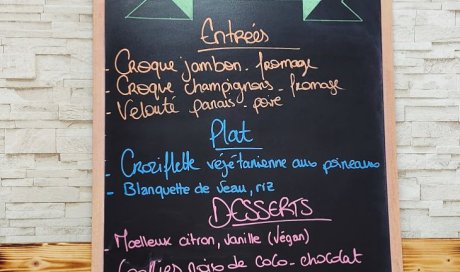 Entrées
- Croque jambon - fromage
- Croque champignons - fromage
- Velouté panais - poire
Plat
- Croziflette végétarienne aux poireaux
- Blanquette de veau, riz
DESSERTS
- Moelleux citron, vanille (végan)
- Cookies noix de coco - chocolat